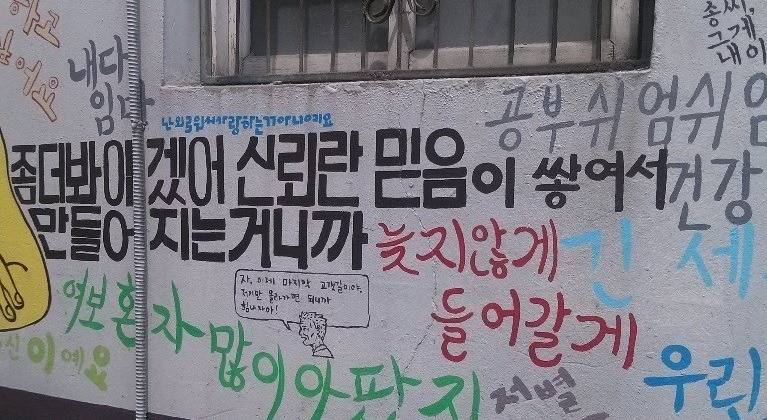 내다
임다
종씨,
그게
내이
난외로워서사랑하는거아니에요
공부쉬엄쉬엄
좀더봐야겠어 신뢰란 믿음이 쌓여서
만들어지는거니까
건강
늦지않게
들어갈게
긴 세
여보 혼자 많이 아팠지
자, 이제 마지막 고갯길이야.
저기만 올라가면 되니까
힘내자아!
신이예요
저별
우리